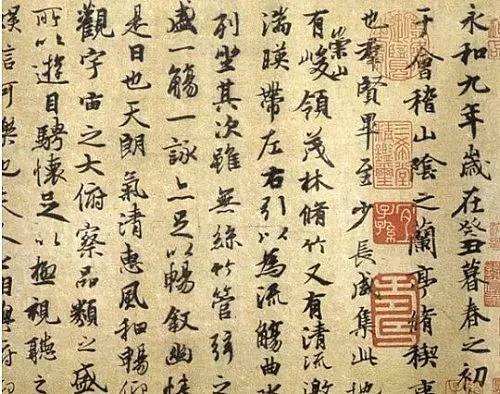 永和九年歲在癸丑暮春之初
于會稽山陰之蘭亭脩稧事
也群賢畢至少長咸集此地
有崇山峻領茂林脩竹又有清流激
湍暎帶左右引以為流觴曲水
列坐其次雖無絲竹管弦之
盛一觴一詠亦足以暢敘幽情
是日也天朗氣清惠風和暢仰
觀宇宙之大俯察品類之盛
所以遊目騁懷足以極視聽之
娛信可樂也夫人之相與俯仰
三希堂精鑒璽
宜子孫